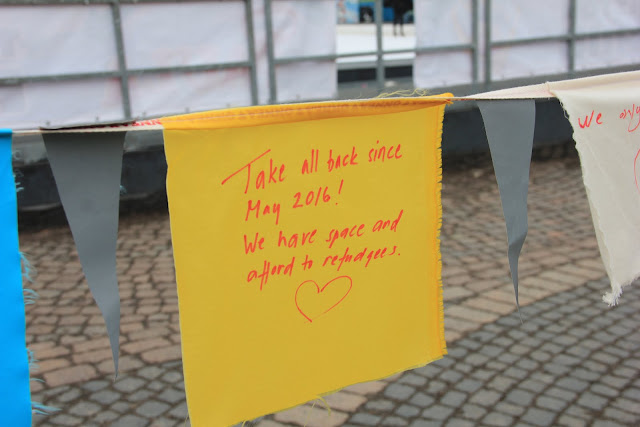 Take all back since
May 2016!
We have space and
afford to refudgees.
We